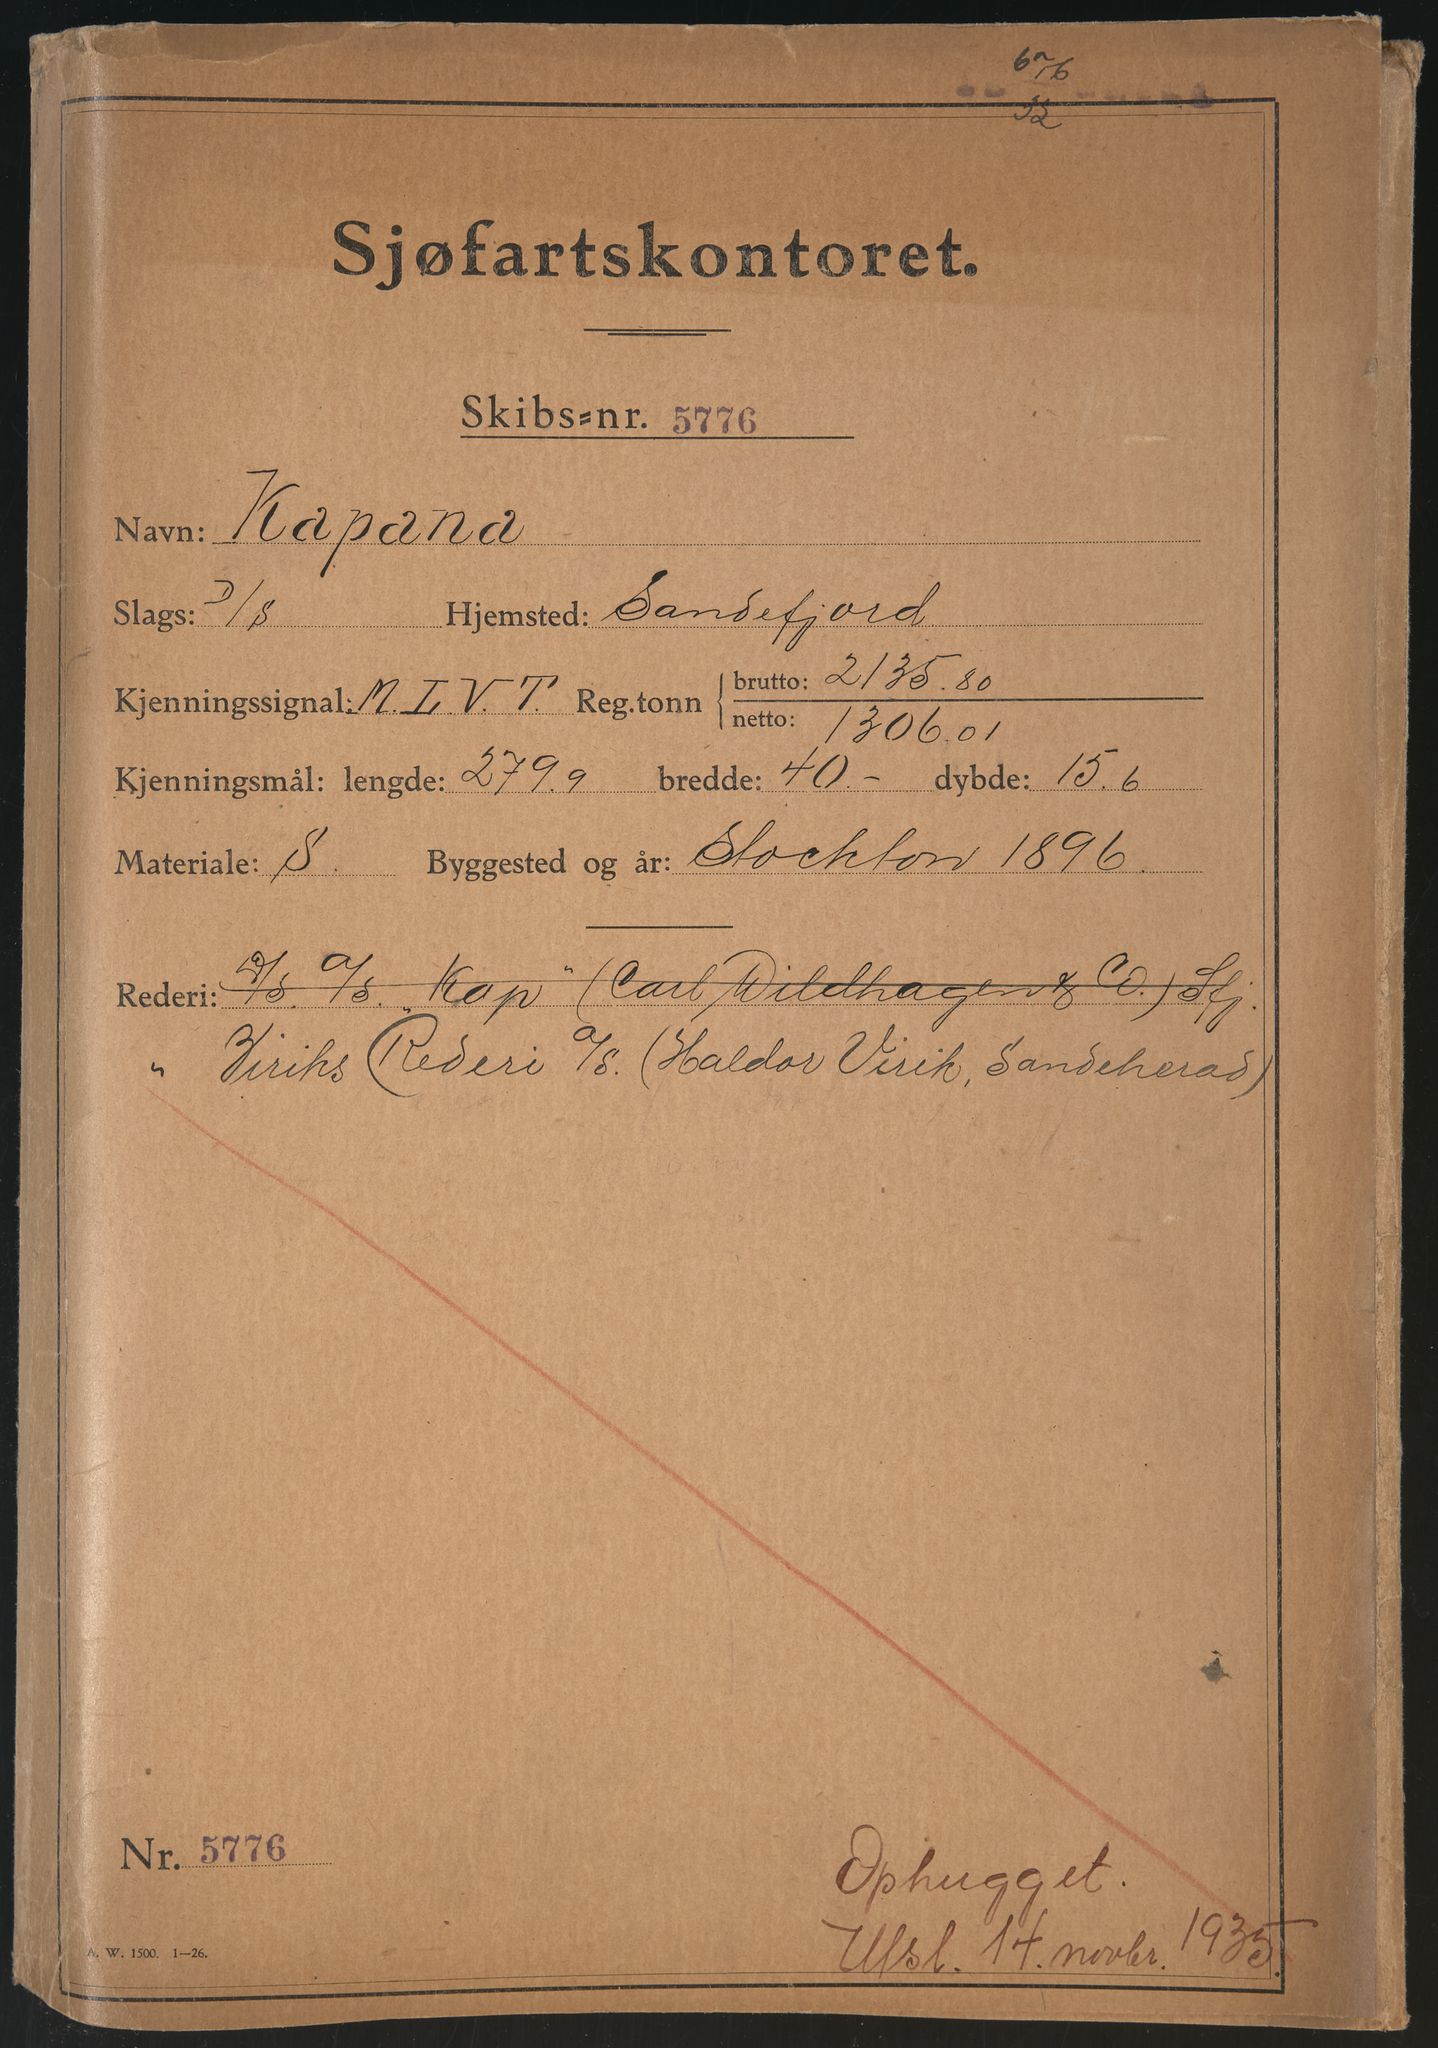 Sjøfartskontoret.
Skibs=nr. 5776
Navn: Kapana
Slags: D/S Hjemsted: Sandefjord
Kjenningssignal: M.L.V.T. Reg.tonn brutto: 2135.80
netto: 1306.01
Kjenningsmål: lengde: 279.9 bredde: 40.- dybde: 15.6
Materiale: S. Byggested og år: Stockton 1896.
Rederi: D/S. A/S. "Kap" (Carl Wildhagen & Co.) Sfj.
" Viriks Rederi A/S. (Haldor Virik, Sandeherad)
Nr. 5776
Ophugget.
Utsl. 14. novbr. 1935.
A. W. 1500. 1—26.